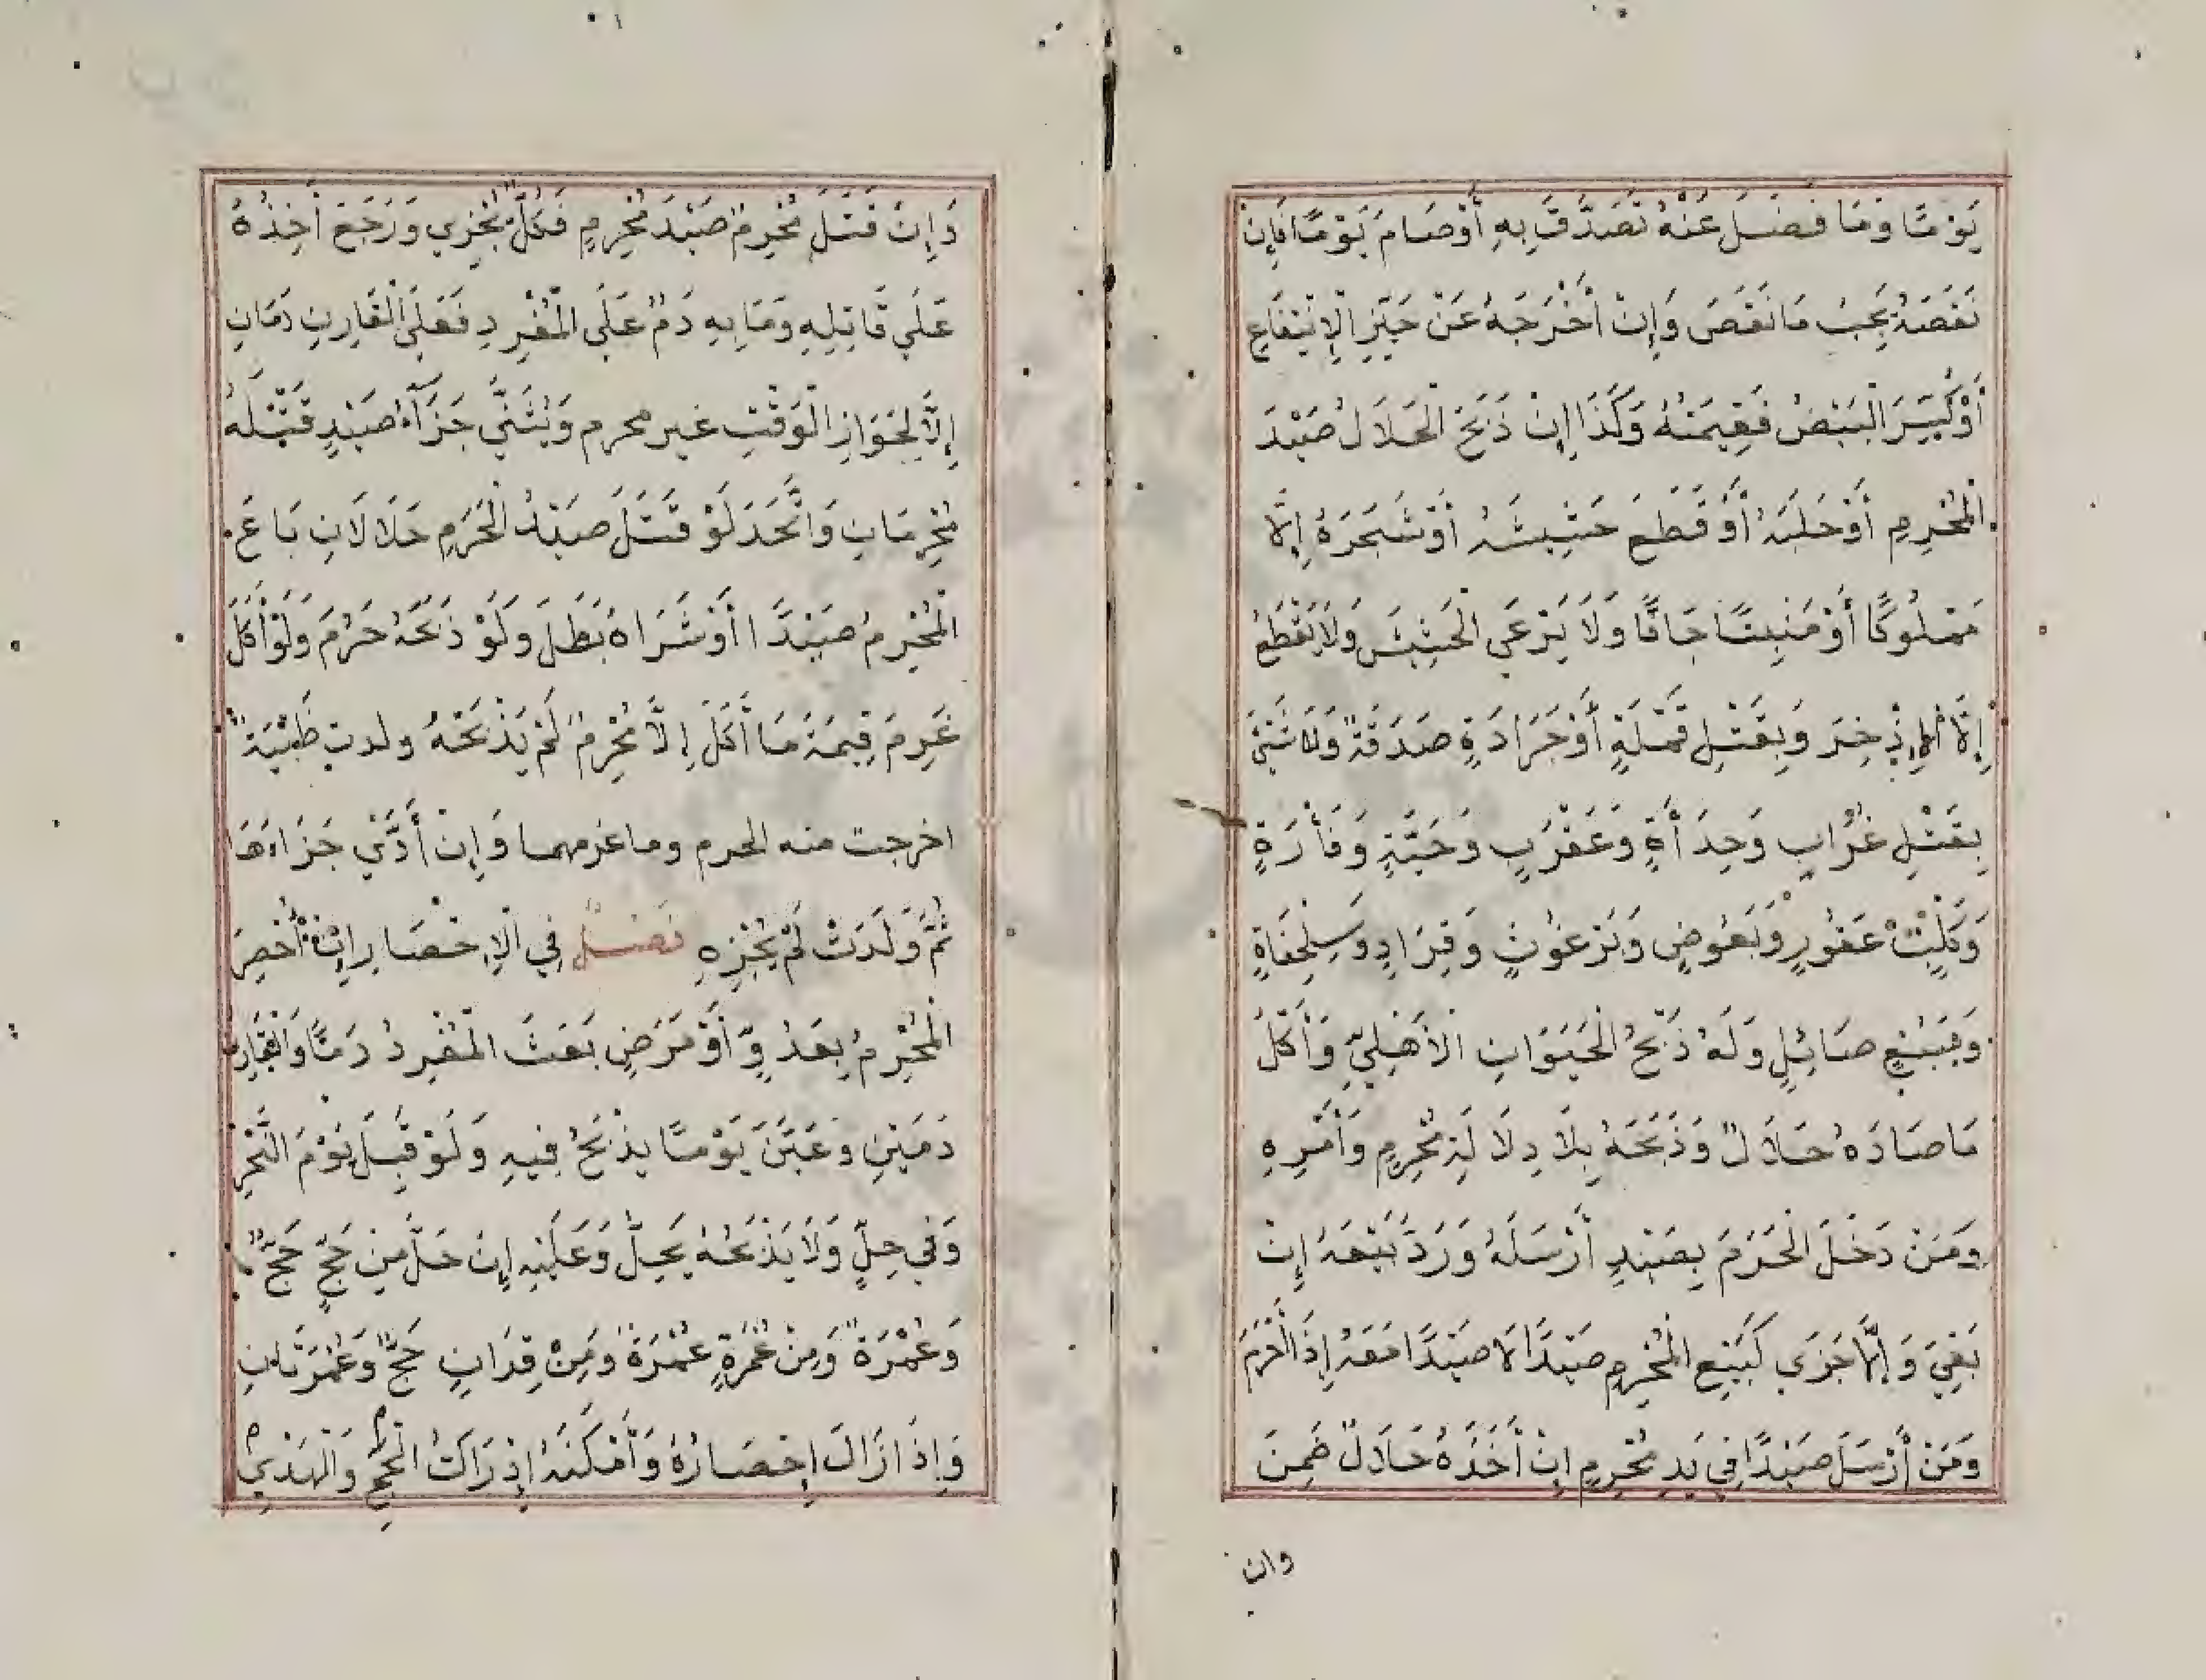 يَوْمًا وَمَا فَضَلَ عَنْهُ تَصَدَّقَ بِهِ أَوْصَامَ يَوْمًا فَإِنْ
نَقَصَهُ يَجِبُ مَا نَقَصَ وَإِنْ أَخْرَجَهُ عَنْ حَيِّزِ الْإِنْتِفَاعِ
أَوْ كَسَرَ الْبَيْضَ فَقِيمَتُهُ وَكَذَا إِنْ ذَبَحَ الْحَلَالُ صَيْدَ
الْمُحْرِمِ أَوْ حَلَبَهُ أَوْ قَطَعَ حَشِيشَهُ أَوْ شَجَرَهُ إِلَّا
مَمْلُوكًا أَوْ مَنْبِتًا جَافًّا وَلَا يَرْعَى الْحَشِيشَ وَلَا يَقْطَعُ
إِلَّا الْإِذْخِرَ وَبِقَتْلِ قَمْلَةٍ أَوْ جَرَادَةٍ صَدَقَةٌ وَلَا شَيْئَ
بِقَتْلِ غُرَابٍ وَحِدَأَةٍ وَعَقْرَبٍ وَحَيَّةٍ وَفَأْرَةٍ
وَكَلْبٍ عَقُورٍ وَبَعُوضٍ وَبَرْغُوثٍ وَقِرَادٍ وَسِلْحِفَاةٍ
وَبِسَبُعٍ صَائِلٍ وَلَهُ ذَبْحُ الْحَيَوَانِ الْأَهْلِيِّ وَأَكْلُ
مَا صَادَهُ حَلَالٌ وَذَبَحَهُ بِلَا دِلَالَةِ مُحْرِمٍ وَأَمْرِهِ
وَمَنْ دَخَلَ الْحَرَمَ بِصَيْدٍ أَرْسَلَهُ وَرَدَّ بَيْعَهُ إِنْ
بَقِيَ وَإِلَّا جَزَى كَبَيْعِ الْمُحْرِمِ صَيْدًا لَا صَيْدًا مَعَهُ إِذَا أَحْرَمَ
وَمَنْ أَرْسَلَ صَيْدًا فِي يَدِ مُحْرِمٍ إِنْ أَخَذَهُ حَلَالٌ ضَمِنَ
وان
وَإِنْ قَتَلَ مُحْرِمٌ صَيْدَ مُحْرِمٍ فَكُلٌّ يُجْزِي وَرَجَعَ آخِذُهُ
عَلَى قَاتِلِهِ وَمَا بِهِ دَمٌ عَلَى الْمُفْرِدِ فَعَلَى الْقَارِنِ دَمَانِ
إِلَّا لِجَوَازِ الْوَقْتِ غير محرم وَيُثَنَّى جَزَآءُ صَيْدٍ قَتَلَهُ
مُحْرِمَانِ وَاتَّحَدَ لَوْ قَتَلَ صَيْدُ الْحَرَمِ حَلَالَانِ بَاعَ
الْمُحْرِمُ صَيْدًا أَوْ شَرَاهُ بَطَلَ وَلَوْ ذَبَحَهُ حَرُمَ وَلَوْ أَكَلَ
غَرِمَ قِيمَةَ مَا أَكَلَ إِلَّا مُحْرِمٌ لَمْ يَذْبَحْهُ ولدت ظَبْيَةٌ
اخرجت منه الحرم وما غرمهما وَإِنْ أَدَّى جَزَاءَهَا
ثُمَّ وَلَدَتْ لَمْ يُجْزِهِ فَصْلٌ فِي الْإِحْصَارِ إِنْ أُحْصِرَ
الْمُحْرِمُ بِعَدُوٍّ أَوْ مَرَضٍ بَعَثَ الْمُفْرِدُ دَمًا وَالْقَارِنُ
دَمَيْنِ وَعَيَّنَ يَوْمًا يذْبَحُ فِيهِ وَلَوْ قَبْلَ يَوْمَ النَّحْرِ
وَفِي حِلٍّ وَلَا يَذْبَحُهُ يَحِلُّ وَعَلَيْهِ إِنْ حَلَّ مِنْ حَجٍّ حَجٌّ
وَعُمْرَةٌ وَمِنْ عُمْرَةٍ عُمْرَةٌ وَمِنْ قِرَانٍ حَجٌّ وَعُمْرَتَانِ
وَإِذَا زَالَ إِحْصَارُهُ وَأَمْكَنَهُ إِدْرَاكُ الْحَجِّ وَالْهَدْيِ